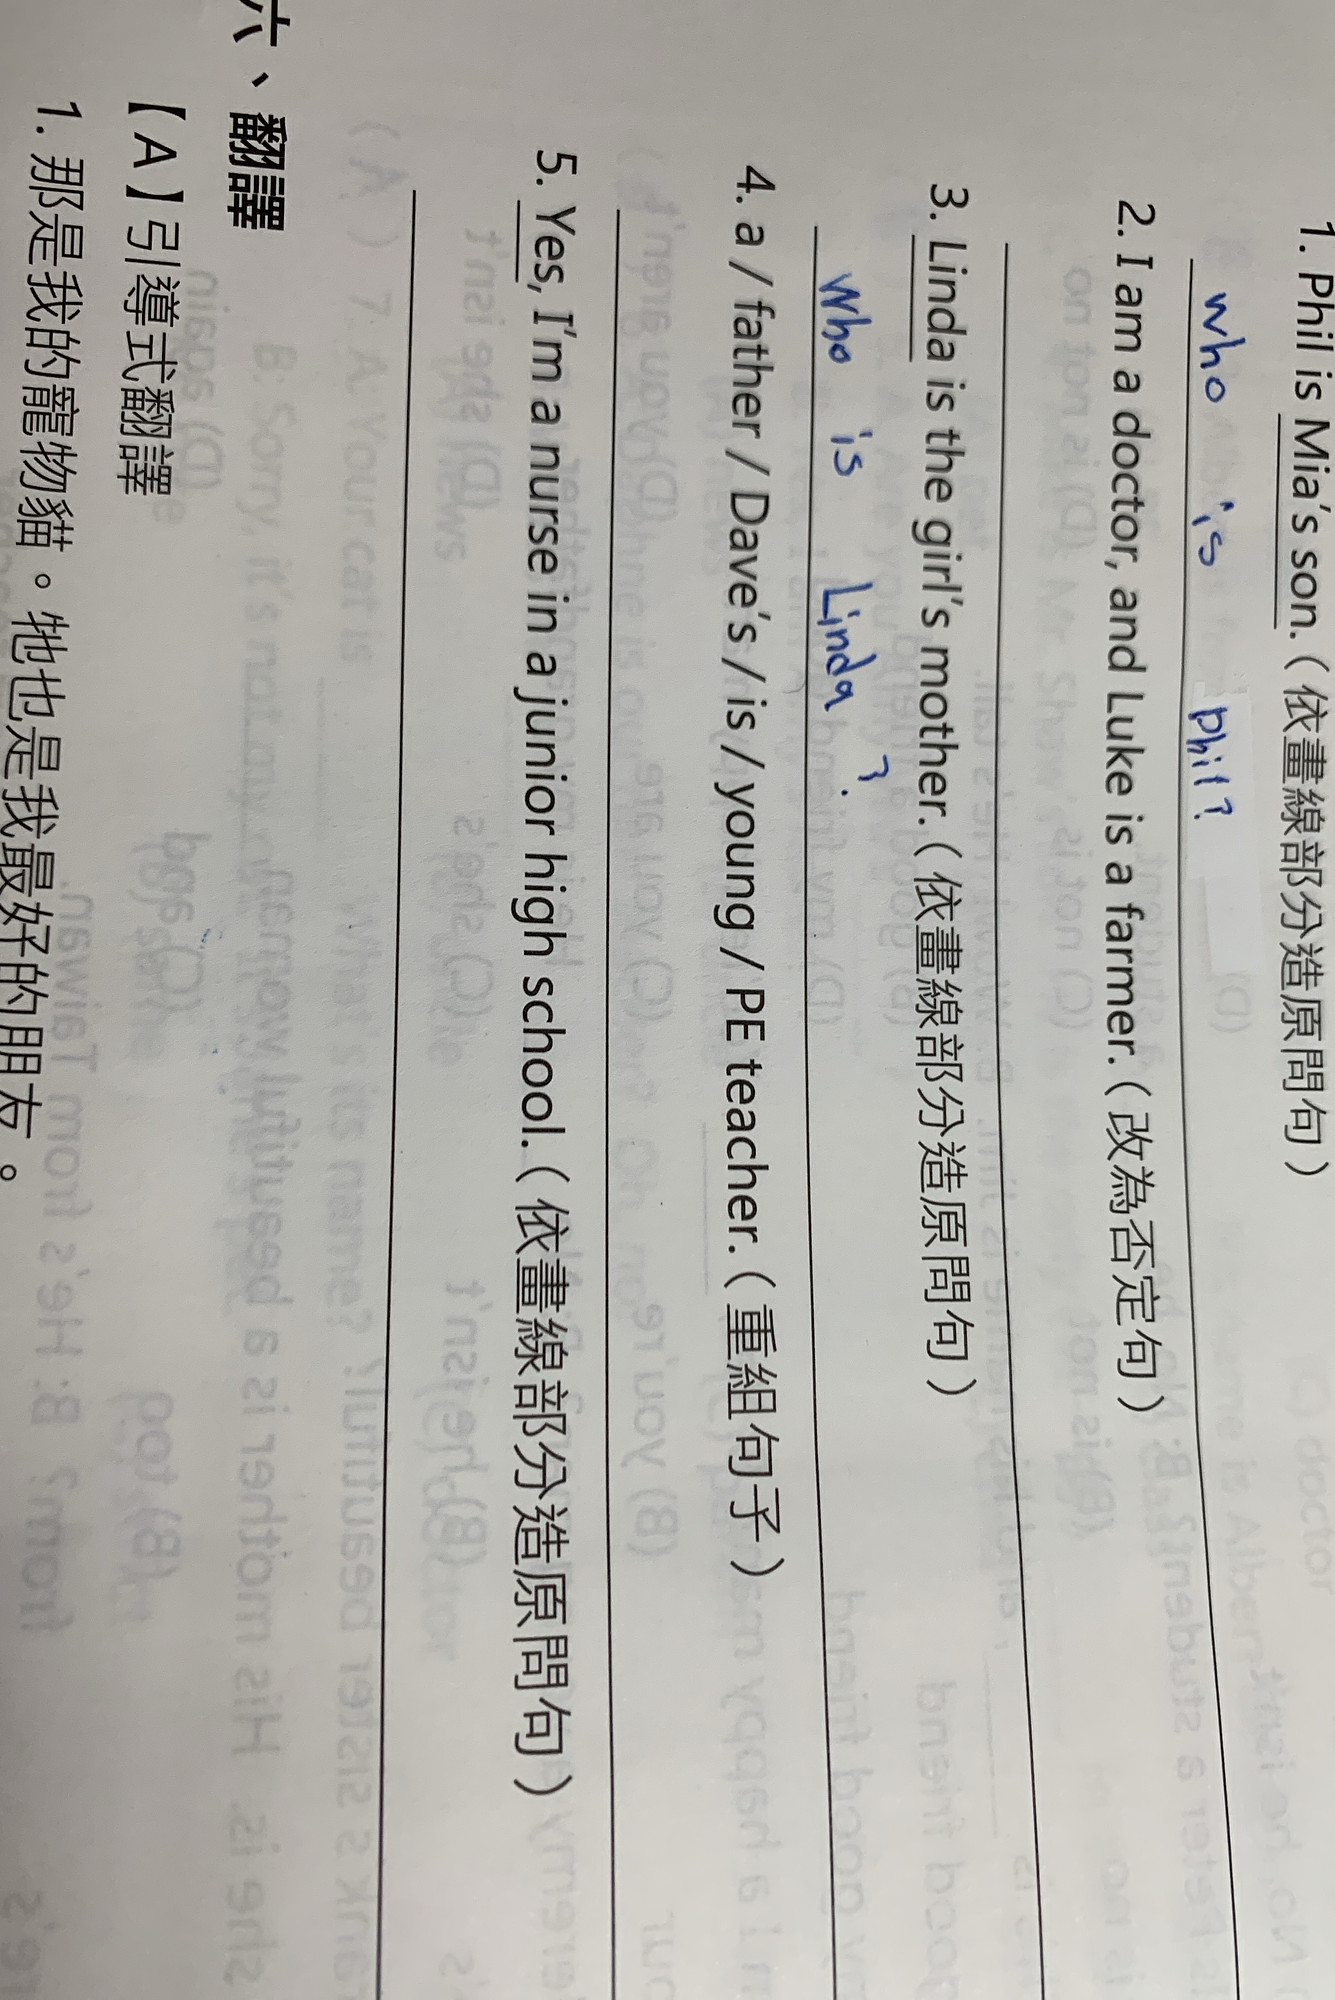 1. Phil is Mia's son.（依畫線部分造原問句）
who is phil?
2. I am a doctor, and Luke is a farmer.（改為否定句）
3. Linda is the girl's mother.（依畫線部分造原問句）
Who is Linda ?
4. a / father / Dave's / is / young / PE teacher.（重組句子）
5. Yes, I'm a nurse in a junior high school.（依畫線部分造原問句）
六、翻譯
【A】引導式翻譯
1. 那是我的寵物貓。牠也是我最好的朋友。